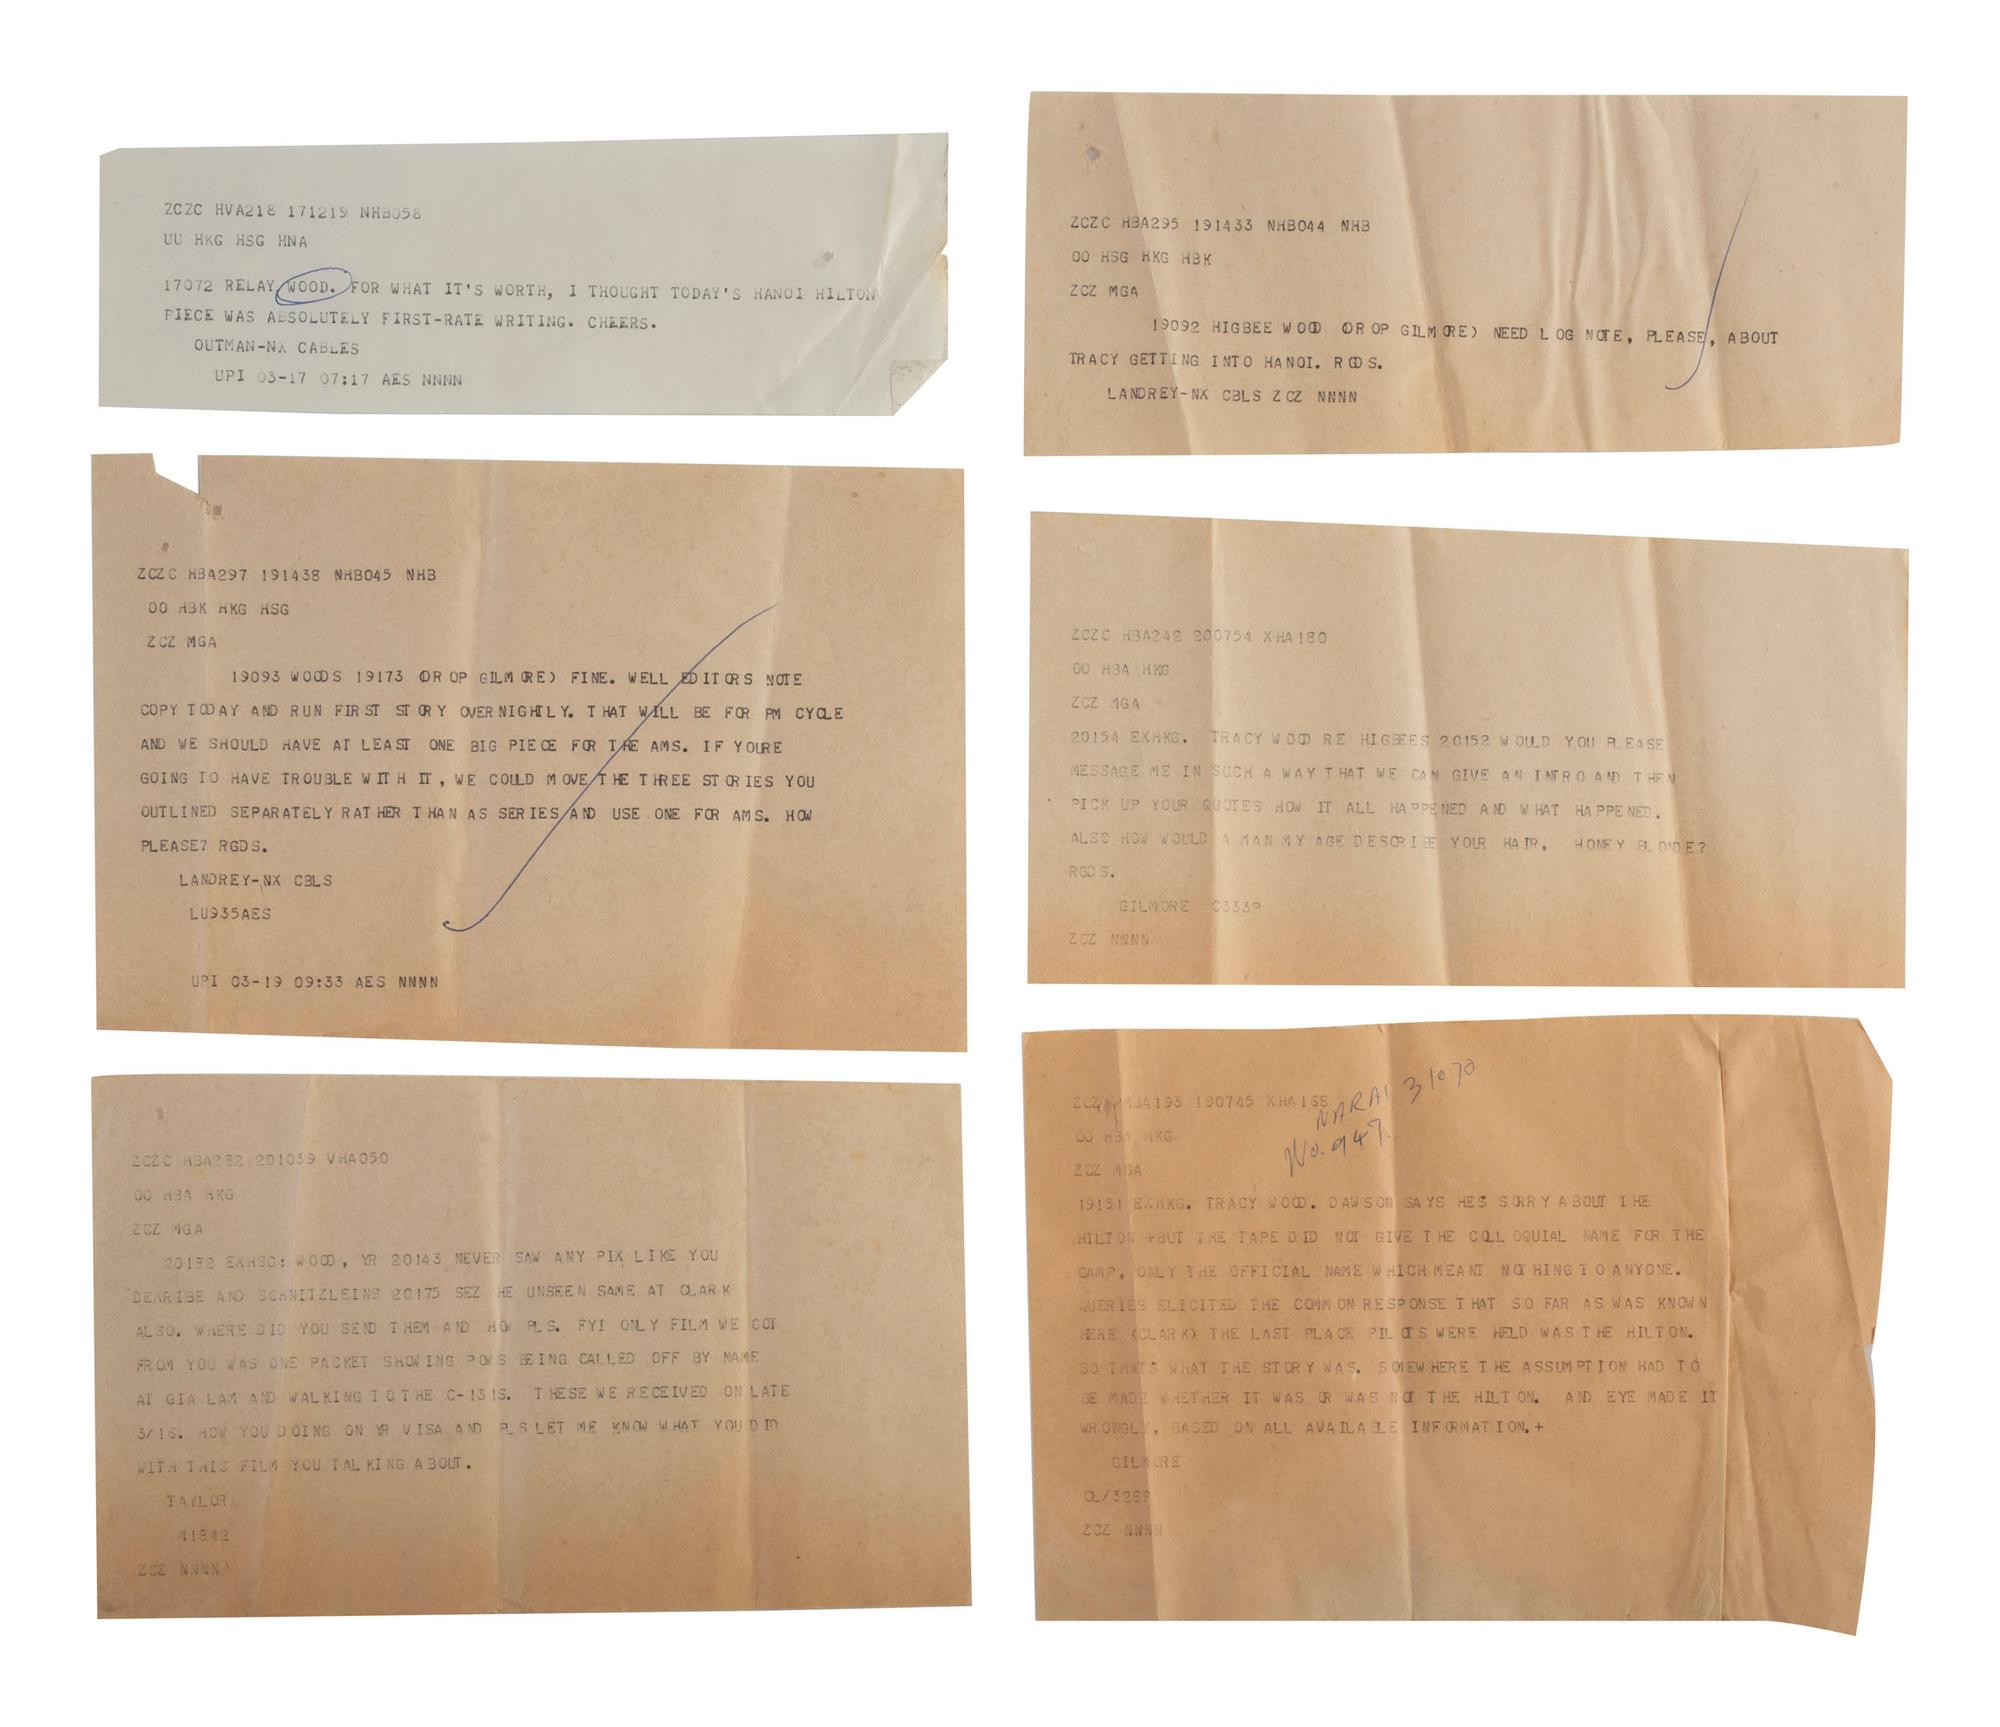 ZCZC HVA218 171219 NHB058
UU HKG HSG HNA
17072 RELAY WOOD. FOR WHAT IT'S WORTH, I THOUGHT TODAY'S HANOI HILTON
PIECE WAS ABSOLUTELY FIRST-RATE WRITING. CHEERS.
OUTMAN-NX CABLES
UPI 03-17 07:17 AES NNNN
ZCZC HBA297 191438 NHB045 NHB
OO HBK HKG HSG
ZCZ MGA
19093 WOODS 19173 (DROP GILMORE) FINE. WELL EDITORS NOTE
COPY TODAY AND RUN FIRST STORY OVERNIGHTLY. THAT WILL BE FOR PM CYCLE
AND WE SHOULD HAVE AT LEAST ONE BIG PIECE FOR THE AMS. IF YOURE
GOING TO HAVE TROUBLE WITH IT, WE COULD MOVE THE THREE STORIES YOU
OUTLINED SEPARATELY RATHER THAN AS SERIES AND USE ONE FOR AMS. HOW
PLEASE? RGDS.
LANDREY-NX CBLS
LU935AES
UPI 03-19 09:33 AES NNNN
ZCZC HBA282 201039 VHA050
OO HBA HKG
ZCZ MGA
20182 EXHSG: WOOD, YR 20143 NEVER SAW ANY PIX LIKE YOU
DEKRIBE AND SCHNITZLEINS 20175 SEZ HE UNSEEN SAME AT CLARK
ALSO. WHERE DID YOU SEND THEM AND HOW PLS. FYI ONLY FILM WE GOT
FROM YOU WAS ONE PACKET SHOWING POWS BEING CALLED OFF BY NAME
AT GIA LAM AND WALKING TO THE C-131S. THESE WE RECEIVED ON LATE
3/16. HOW YOU DOING ON YR VISA AND PLS LET ME KNOW WHAT YOU DID
WITH THIS FILM YOU TALKING ABOUT.
TAYLOR
M1842
ZCZ NNNN
ZCZC HBA295 191433 NHB044 NHB
OO HSG HKG HBK
ZCZ MGA
19092 HIGBEE WOOD (DROP GILMORE) NEED LOG NOTE, PLEASE, ABOUT
TRACY GETTING INTO HANOI. RGDS.
LANDREY-NX CBLS ZCZ NNNN
ZCZC HBA242 200754 XHA180
OO HBA HKG
ZCZ MGA
20154 EXHKG. TRACY WOOD RE HIGBEES 20152 WOULD YOU PLEASE
MESSAGE ME IN SUCH A WAY THAT WE CAN GIVE AN INTRO AND THEN
PICK UP YOUR QUOTES HOW IT ALL HAPPENED AND WHAT HAPPENED.
ALSO HOW WOULD A MAN MY AGE DESCRIBE YOUR HAIR. HONEY BLONDE?
RGDS.
GILMORE C333P
ZCZ NNNN
NARAI 31070
No. 947
ZCZC HBA193 190745 XHA168
OO HBA HKG
ZCZ MGA
19151 EXHKG. TRACY WOOD. DAWSON SAYS HES SORRY ABOUT THE
HILTON +BUT THE TAPE DID NOT GIVE THE COLLOQUIAL NAME FOR THE
CAMP, ONLY THE OFFICIAL NAME WHICH MEANT NOTHING TO ANYONE.
QUERIES ELICITED THE COMMON RESPONSE THAT SO FAR AS WAS KNOWN
HERE (CLARK) THE LAST PLACE PILOTS WERE HELD WAS THE HILTON.
SO THATS WHAT THE STORY WAS. SOMEWHERE THE ASSUMPTION HAD TO
BE MADE WHETHER IT WAS OR WAS NOT THE HILTON. AND EYE MADE IT
WRONGLY, BASED ON ALL AVAILABLE INFORMATION.+
GILMORE
CL/328P
ZCZ NNNN